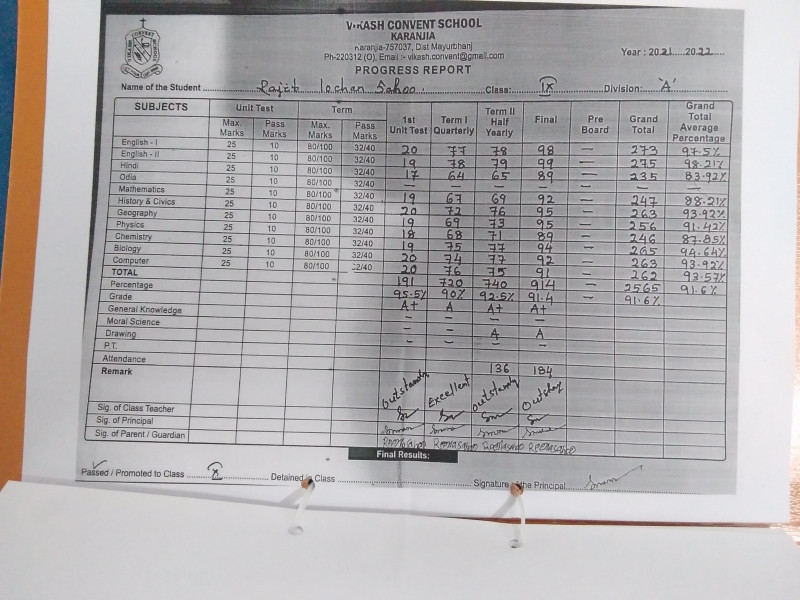 VIKASH CONVENT SCHOOL
KARANJIA
Karanjia-757037, Dist Mayurbhanj
Ph-220312 (O), Email :- vikash.convent@gmail.com
PROGRESS REPORT
Year : 2021......2022......
Name of the Student ........ Rajib lochan Sahoo. ........ Class: ...... IX ...... Division: 'A'
SUBJECTS Unit Test Term 1st Unit Test Term I Quarterly Term II Half Yearly Final Pre Board Grand Total Grand Total Average Percentage
Max. Marks Pass Marks Max. Marks Pass Marks
English - I 25 10 80/100 32/40 20 77 78 98 — 273 97.5%
English - II 25 10 80/100 32/40 19 78 79 99 — 275 98.21%
Hindi 25 10 80/100 32/40 17 64 65 89 — 235 83.92%
Odia 25 10 80/100 32/40 — — — — — — —
Mathematics 25 10 80/100 32/40 19 67 69 92 — 247 88.21%
History & Civics 25 10 80/100 32/40 20 72 76 95 — 263 93.92%
Geography 25 10 80/100 32/40 19 69 73 95 — 256 91.42%
Physics 25 10 80/100 32/40 18 68 71 89 — 246 87.85%
Chemistry 25 10 80/100 32/40 19 75 77 94 — 265 94.64%
Biology 25 10 80/100 32/40 20 74 77 92 — 263 93.92%
Computer 25 10 80/100 32/40 20 76 75 91 — 262 93.57%
TOTAL 191 720 740 914 — 2565 91.6%
Percentage 95.5% 90% 92.5% 91.4 — 91.6%
Grade A+ A A+ A+
General Knowledge – – – –
Moral Science – – – –
Drawing – – A A
P.T. – – – –
Attendance 136 184
Remark Outstanding Excellent Outstanding Outstanding
Sig. of Class Teacher
Sig. of Principal
Sig. of Parent / Guardian
Final Results:
Passed / Promoted to Class ........ X ........ Detained in Class ........ Signature of the Principal